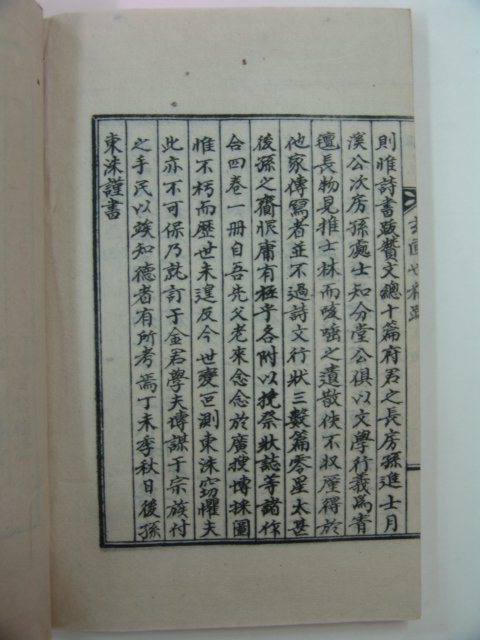 則惟詩書跋贊文總十篇府君之長房孫進士月
溪公次房孫處士知分堂公俱以文學行義爲青
氊長物見推士林而咳唾之遺散佚不収厪得於
他家傳寫者並不過詩文行狀三數篇零星太甚
後孫之齎恨庸有極乎各附以挽祭狀誌等諸作
合四卷一冊自吾先父老來念念於廣搜博採圖
惟不朽而歷世未遑及今世變叵測東洙窃懼夫
此亦不可保乃就訂于金君學夫博謀于宗族付
之手民以竢知德者有所考焉丁未季秋日後孫
東洙謹書